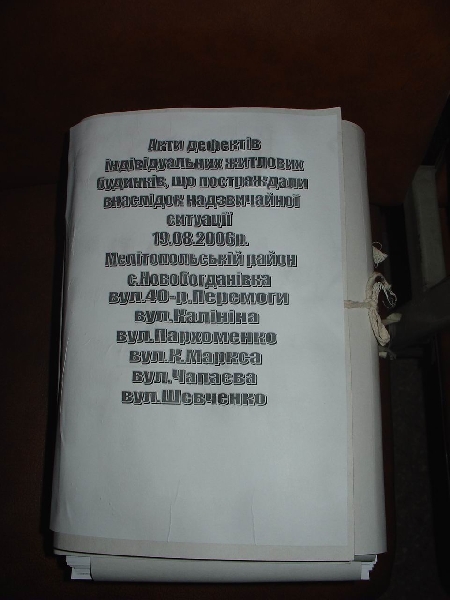 Акти дефектів
індівідуальних житлових
будинків, що постраждали
внаслідок надзвичайної
ситуації
19.08.2006р.
Мелітопольській район
с.Новобогданівка
вул.40-р.Перемоги
вул.Калініна
вул.Пархоменко
вул.К.Маркса
вул.Чапаєва
вул.Шевченко